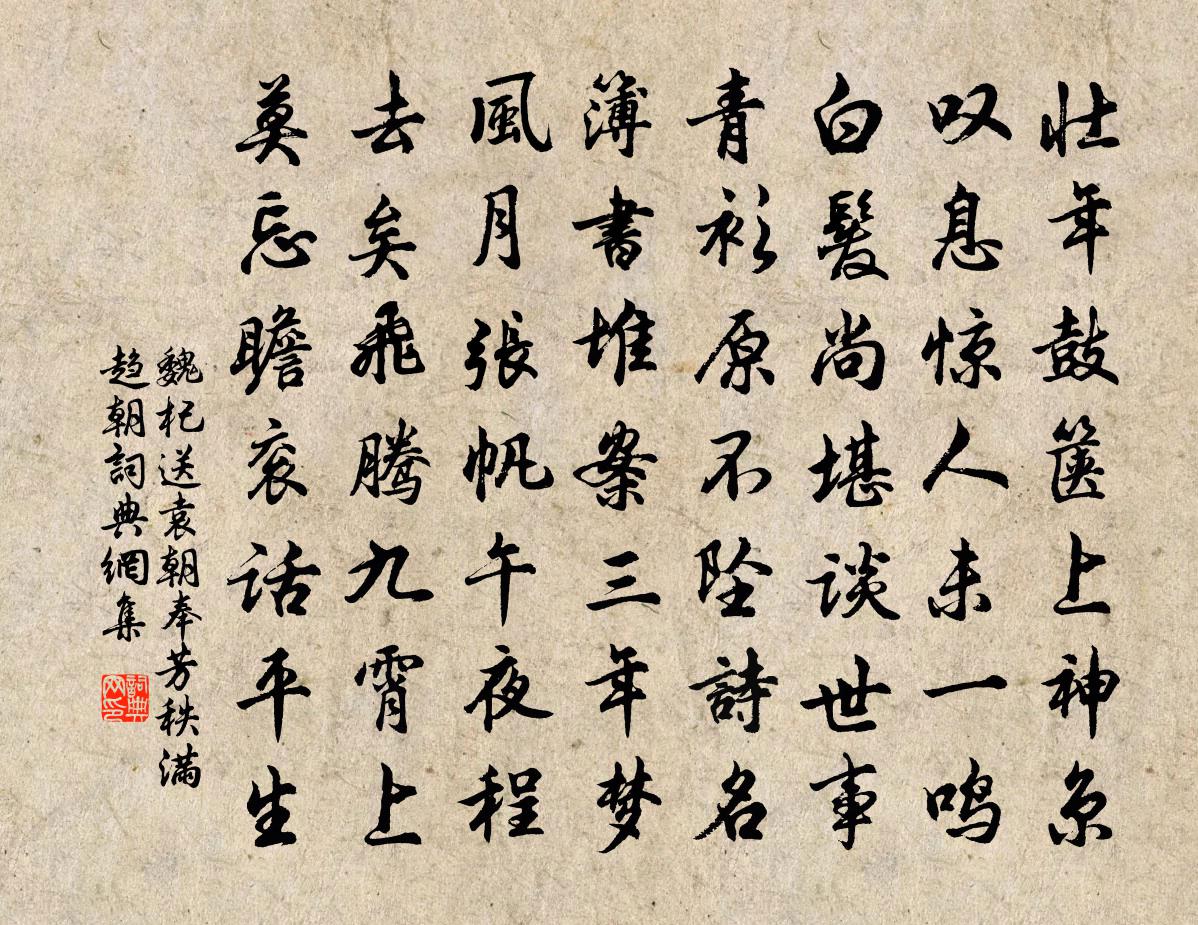 壮年鼓箧上神京
叹息惊人未一鸣
白髮尚堪谈世事
青衫原不坠詩名
簿書堆案三年梦
風月張帆午夜程
去矣飛騰九霄上
莫忘瞻衮话平生
魏杞送袁朝奉芳秩满
趋朝詞典網集
詞典网印